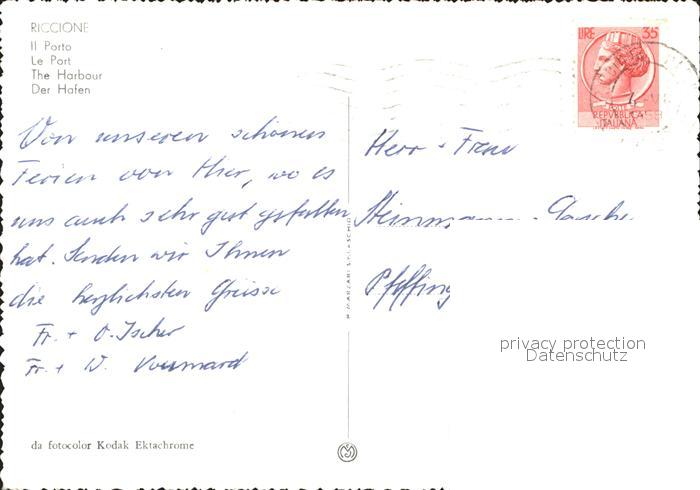 RICCIONE
Il Porto
Le Port
The Harbour
Der Hafen
LIRE 35
REPVBBLICA
ITALIANA
Von unseren schönen
Ferien von Hier, wo es
uns auch sehr gut gefallen
hat. Senden wir Ihnen
die herzlichsten Grüsse
Fr. + O. Ischer
Fr. + W. Voumard
Herr + Frau
Pfeffing
privacy protection
Datenschutz
da fotocolor Kodak Ektachrome